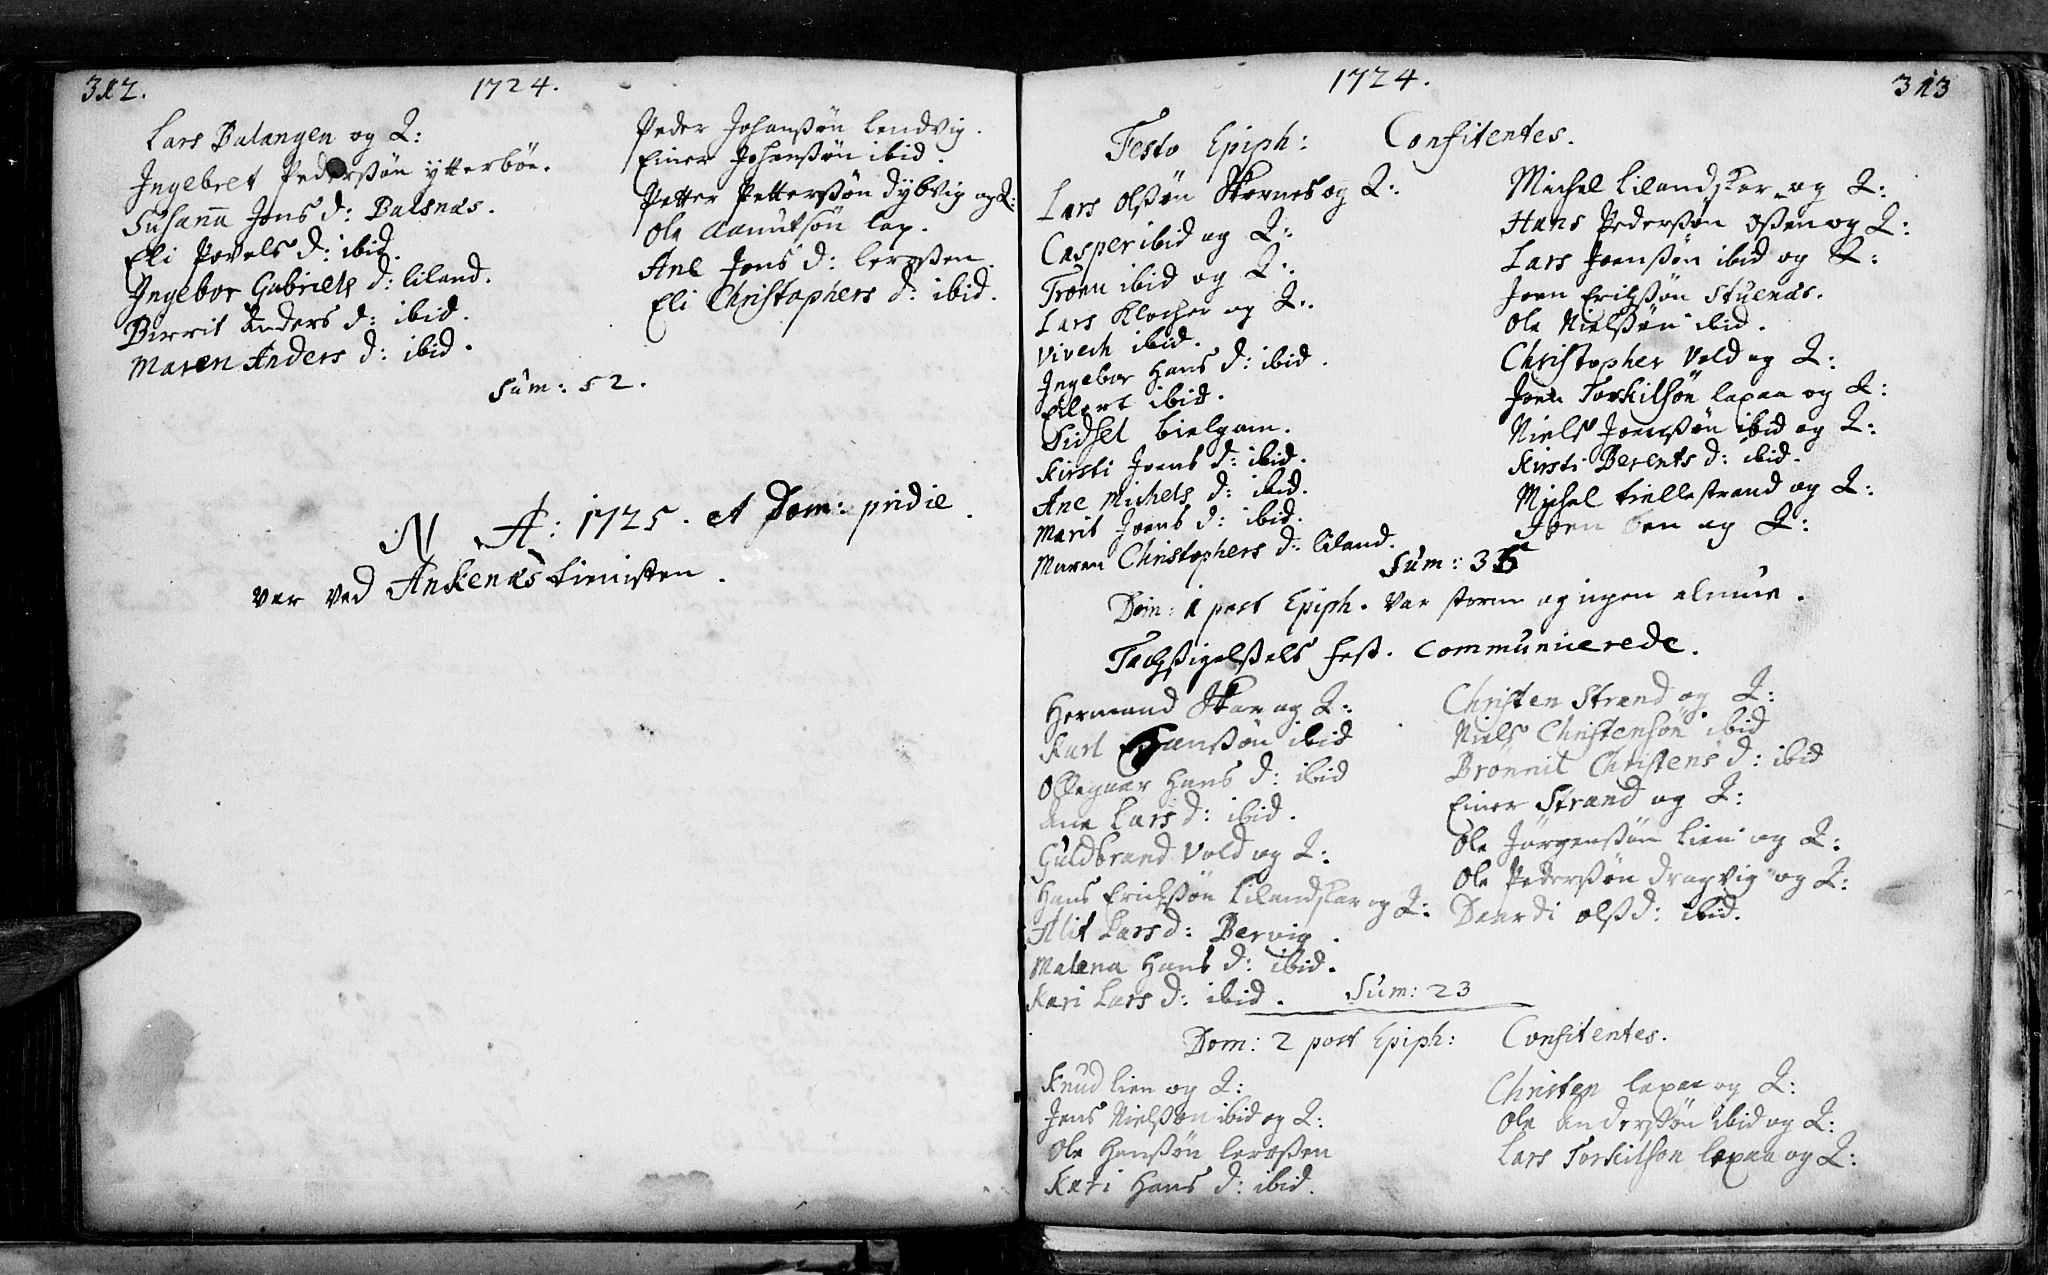 312.
1724.
Lars Balangen og Q:
Ingebret Pederssøn ytterbøe.
Susanna Jons d: Balsnæs.
Eli Povels d: ibid.
Ingebor Gabriels d: liland.
Birrit Anders d: ibid.
Maren Anders d: ibid.
Peder Johanssøn lendvig.
Einer Johanssøn ibid.
Petter Petterssøn dybvig og Q:
Ole Aanutsøn lap.
Ane Jons d: lerossen.
Eli Christophers d: ibid.
Sum: 52.
N A: 1725. et Dom: pridie
var ved Ankenæs tienisten.
1724.
313
Festo Epiph: Confitentes.
Lars Olssøn Skornes og Q:
Casper ibid og Q:
Troen ibid og Q:
Lars Klocher og Q:
Vivech ibid.
Ingebor Hans d: ibid.
Eilert ibid.
Sidsel bielgam.
Kirsti Joens d: ibid.
Ane Michels d: ibid.
Marit Joens d: ibid.
Maren Christophers d: liland.
Michel Lilandskar og Q:
Hans Pederssøn ossen og Q:
Lars Joenssøn ibid og Q:
Joen Erikssøn Stuenæs.
Ole Nielssøn ibid.
Christopher Vold og Q:
Joen Torkilsøn lapaa og Q:
Niels Joenssøn ibid og Q:
Kirsti Berents d: ibid.
Michel tiellestrand og Q:
Joen og Q:
Sum: 35
Dom: 1 post Epiph. Var storm og ingen almue.
Tachsigelsels fest. Communicerede.
Hermand Skar og Q:
Karl Hanssøn ibid
Ollegaar Hans d: ibid
Ane Lars d: ibid.
Guldbrand Vold og Q:
Hans Erichssøn Lilandskar og Q:
Alit Lars d: Bervig.
Malena Hans d: ibid.
Kari Lars d: ibid.
Christen Strand og Q:
Niels Christensøn ibid
Brønnil Christens d: ibid
Einer Strand og Q:
Ole Jørgenssøn lien og Q:
Ole Pederssøn dragvig og Q:
Daardi olss d: ibid.
Sum: 23
Dom: 2 post Epiph: Confitentes.
Knud lien og Q:
Jens Nielssøn ibid og Q:
Ole Hanssøn lerossen
Kari Hans d: ibid.
Christen lapaa og Q:
Ole Anderssøn ibid og Q:
Lars Torkilsøn lapaa og Q: